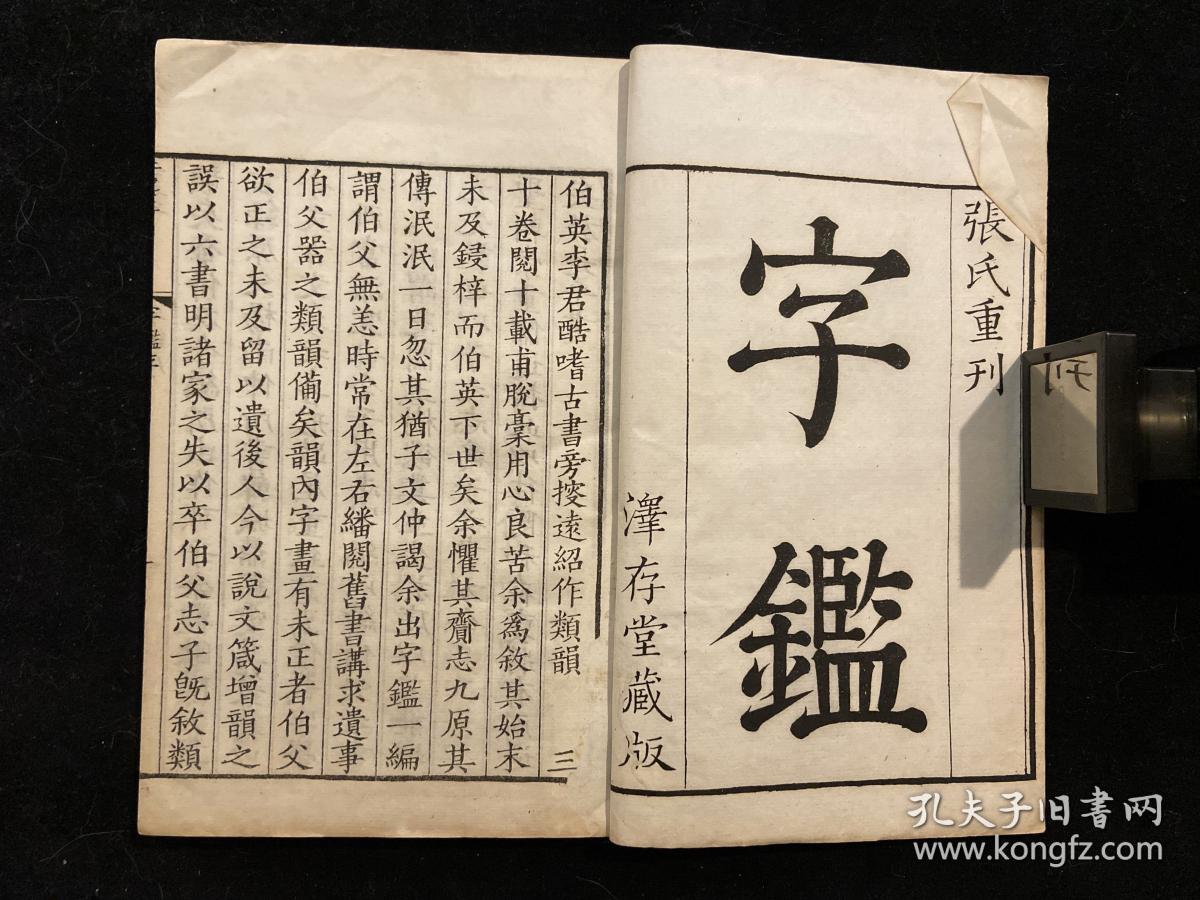 張氏重刊
字鑑
澤存堂藏版
伯英李君酷嗜古書旁搜遠紹作類韻三
十卷閱十載甫脫稾用心良苦余爲敘其始末
未及鋟梓而伯英下世矣余懼其齎志九原其
傳泯泯一日忽其猶子文仲謁余出字鑑一編
謂伯父無恙時常在左右繙閱舊書講求遺事
伯父器之類韻備矣韻內字畫有未正者伯父
欲正之未及留以遺後人今以說文箴增韻之
誤以六書明諸家之失以卒伯父志子旣敘類
刊
孔夫子旧书网
www.kongfz.com